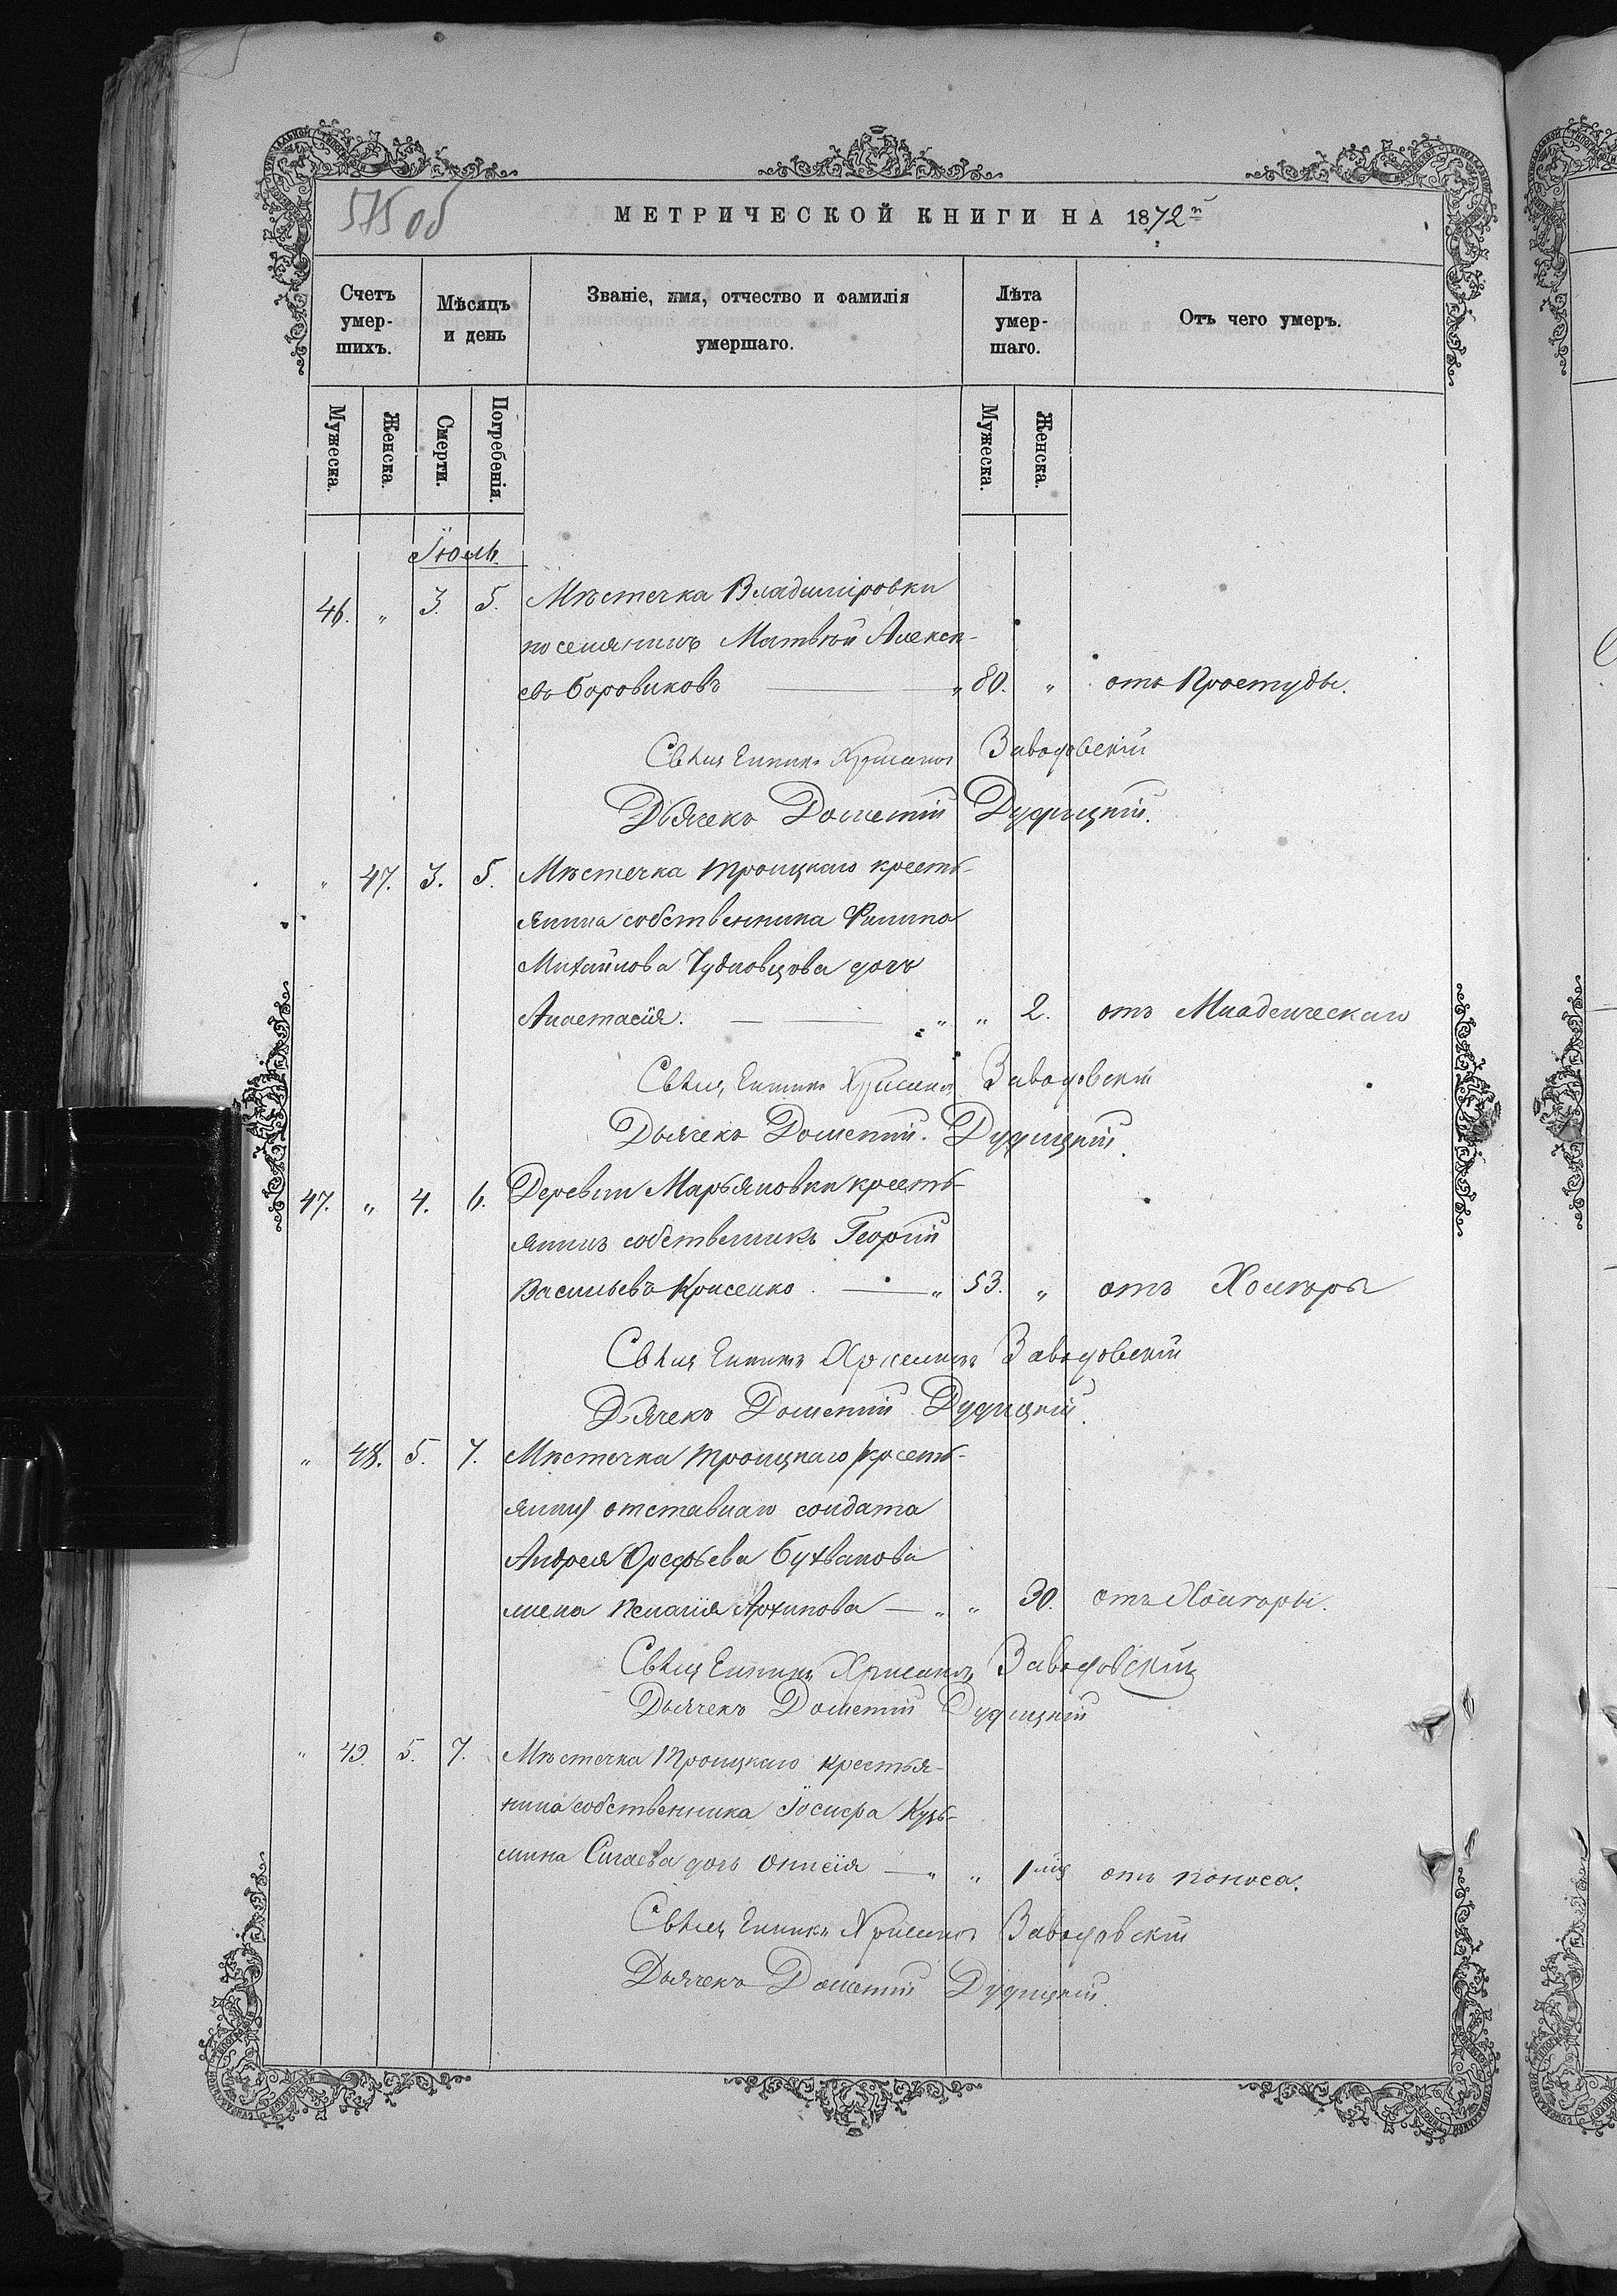 575 об
МЕТРИЧЕСКОЙ КНИГИ НА 1872й
Счетъ умер-шихъ.
Мѣсяцъ и день
Званіе, имя, отчество и фамилія умершаго.
Лѣта умер-шаго.
Отъ чего умеръ.
Мужеска.
Женска.
Смерти.
Погребенія.
Мужеска.
Женска.
Іюль.
46. " 3. 5. Мѣстечка Владиміровки
поселянинъ Матвѣй Алексѣ-
евъ Боровиковъ " 80. " отъ Простуды.
Священникъ Хрисанѳъ Заводовскій
Дьячекъ Дометій Дудицкій.
" 47. 3. 5. Мѣстечка Троицкаго кресть-
янина собственника Филипа
Михайлова Чудновцова дочь
Анастасія. " " 2. отъ Младенческаго
Священникъ Хрисанѳъ Заводовскій
Дьячекъ Дометій Дудицкій.
47. " 4. 6. Деревни Марьяновки кресть-
янинъ собственникъ Георгій
Васильевъ Крисенко. " 53. " отъ Холеры
Священникъ Хрисанѳъ Заводовскій
Дьячекъ Дометій Дудицкій.
" 48. 5. 7. Мѣстечка Троицкаго /кресть-
янин/ отставнаго солдата
Андрея Орефьева Бухванова
жена Пелагія Архипова " " 30. отъ Холеры.
Священникъ Хрисанѳъ Заводовскій
Дьячекъ Дометій Дудицкій
" 49. 5. 7. Мѣстечка Троицкаго крестья-
нина собственника Іосифа Кузь-
мина Сигаева дочь Онисія " " 1 мѣс отъ поноса.
Священникъ Хрисанѳъ Заводовскій
Дьячекъ Дометій Дудицкій.